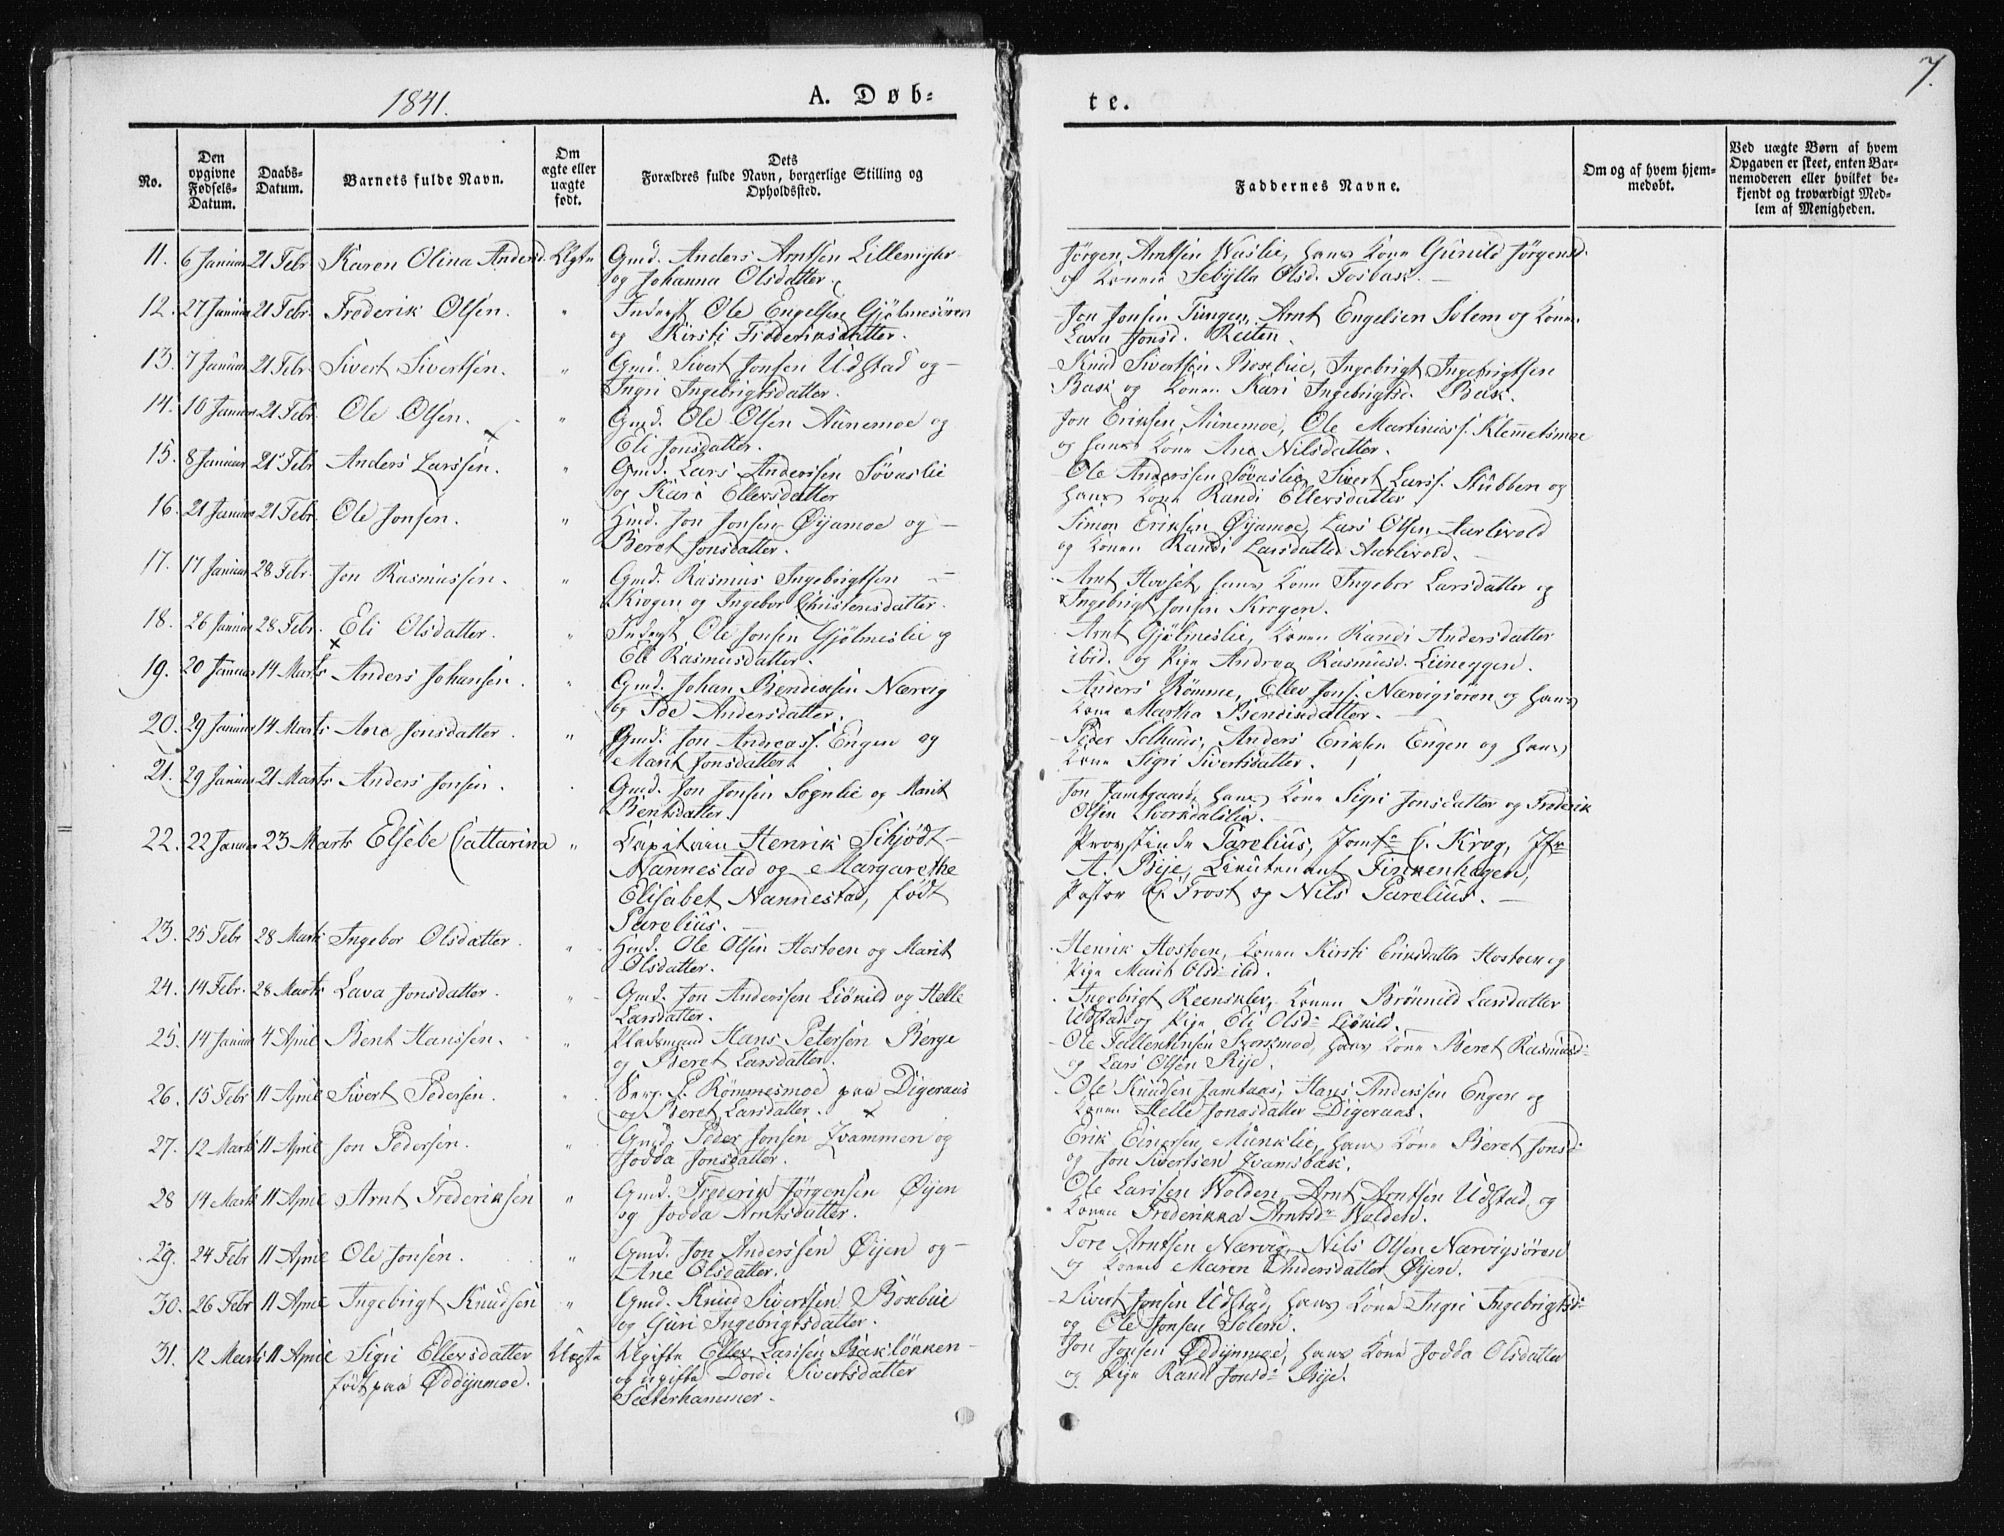 1841.
A. Døb-
te.
7.
No.
Den opgivne Fødsels-Datum.
Daabs-Datum.
Barnets fulde Navn.
Om ægte eller uægte født.
Dets
Forældres fulde Navn, borgerlige Stilling og
Opholdssted.
Faddernes Navne.
Om og af hvem hjem-
medøbt.
Ved uægte Børn af hvem
Opgaven er skeet, enten Bar-
nemoderen eller hvilket be-
kjendt og troværdigt Med-
lem af Menigheden.
11. 6 Januar 21 Febr. Karen Olina Andersd. Ægte Gmd. Anders Arntsen Lillemyhr
og Johanna Olsdatter.
Jørgen Arntsen Waslie, hans Kone Gunild Jørgensd.
og Konen Sebylla Olsd. Fosbak.
12. 27 Januar 21 Febr. Frederik Olsen. " Inderst Ole Engelsen Gjølmesøren
og Kirsti Frederiksdatter.
Jon Jonsen Tungen, Arnt Engelsen Solem og Konen
Lava Jonsd. Reiten.
13. 7 Januar 21 Febr. Sivert Sivertsen. " Gmd. Sivert Jonsen Udstad og
Ingri Ingebrigtsdatter.
Knud Sivertsen Boxbue, Ingebrigt Ingebrigtsen
Bask og Konen Kari Ingebrigtsd. Bask.
14. 10 Januar 21 Febr. Ole Olsen. " Gmd. Ole Olsen Aunemoe og
Eli Jonsdatter.
Jon Eriksen Aunemoe, Ole Martinusf. Klemetsmoe
og hans Kone Ane Nilsdatter.
15. 8 Januar 21 Febr Anders Larssen. " Gmd. Lars Anderssen Søvaslie
og Kari Ellevsdatter
Ole Anderssen Søvaslie, Sivert Larsf. Stubben og
hans Kone Randi Ellevsdatter
16. 21 Januar 21 Febr. Ole Jonsen. " Hmd. Jon Jonsen Øyamoe og
Beret Jonsdatter.
Simon Eriksen Øyamoe, Lars Olsen Aarlivold
og Konen Randi Larsdatter Aarlivold.
17. 17 Januar 28 Febr. Jon Rasmussen. " Gmd. Rasmus Ingebrigtsen
Krogen og Ingebor Christensdatter.
Arnt Hovset, hans Kone Ingebor Larsdatter og
Ingebrigt Jonsen Krogen.
18. 26 Januar 28 Febr. Eli Olsdatter. " Inderst Ole Jonsen Gjølmeslie og
Eli Rasmusdatter.
Arnt Gjølmeslie, Konen Randi Andersdatter
ibid. og Pige Andrea Rasmusd. Luneggen.
19. 20 Januar 14 Marts Anders Johansen. " Gmd. Johan Bendixsen Nærvig
og Ide Andersdatter.
Anders Rømme, Ellev Jonf. Nærvigsøren og hans
Kone Martha Bendixdatter.
20. 29 Januar 14 Marts Ane Jonsdatter. " Gmd. Jon Andreasf. Engen og
Marit Jonsdatter.
Peder Solhuus, Anders Eriksen Engen og hans
Kone Sigri Sivertsdatter.
21. 29 Januar 21 Marts Anders Jonsen. Gmd. Jon Jonsen Sognlie og Marit
Bentsdatter.
Jon Jamtgaard, hans Kone Sigri Jonsdatter og Frederik
Olsen Svorkdalslie.
22. 22 Januar 23 Marts Elsebe Cattarina " Capitain Henrik Schjødt
Nannestad og Margarethe
Elisabet Nannestad, født
Parelius.
Provstinde Parelius, Jomfr C. Krog, Jfr
A. Bye, Lieutenant Finkenhagen,
Pastor C. Frost og Nils Parelius.
23. 25 Febr 28 Marts Ingebor Olsdatter. " Hmd. Ole Olsen Hostoen og Marit
Olsdatter.
Henrik Hostoen, Konen Kirsti Eriksdatter Hostoen og
Pige Marit Olsd. ibd.
24. 14 Febr. 28 Marts Lava Jonsdatter. " Gmd. Jon Anderssen Liøkild og Helle
Larsdatter.
Ingebrigt Reenskler, Konen Brønnild Larsdatter
Udstad og Pige Eli Olsd. Liøkild.
25. 14 Januar 4 April Bent Hanssen. " Pladsmand Hans Petersen Berge
og Beret Larsdatter.
Ole Tellenthsen Skorsmoe, hans Kone Beret Rasmusd.
og Lars Olsen Rije.
26. 15 Febr 11 April Sivert Pedersen. Serg. P. Rømmesmoe paa Digeraas
og Beret Larsdatter.
Ole Knudsen Jamtaas, Hans Anderssen Engen og
Konen Helle Jonasdatter Digeraas.
27. 12 Marts 11 April Jon Pedersen. " Gmd. Peder Jonsen Kvammen og
Jodda Jonsdatter.
Erik Einersen Munklie, hans Kone Beret Jonsd.
og Jon Sivertsen Kvamsbak.
28 14 Marts 11 April Arnt Frederiksen " Gmd. Frederik Jørgensen Øyen
og Jodda Arntsdatter.
Ole Larssen Wolden, Arnt Arntsen Udstad og
Konen Frederikka Arntsdr Wolden.
29. 24 Febr 11 April Ole Jonsen. " Gmd. Jon Anderssen Øijen og
Ane Olsdatter.
Tore Arntsen Nærvig, Nils Olsen Nærvigsøren
og Konen Maren Andersdatter Øijen.
30. 26 Febr 11 April Ingebrigt Knudsen " Gmd. Knud Sivertsen Boxbue
og Guri Ingebrigtsdatter.
Sivert Jonsen Udstad, hans Kone Ingri Ingebrigtsd.
og Ole Jonsen Solem.
31. 12 Marts 11 April Sigri Ellevsdatter Uægte Ugifte Ellev Larssen Bakløkken
født paa Øddynmoe. og ugifte Dordi Sivertsdatter
Sæterhammer.
Jon Jonsen Øddynmoe, hans Kone Jodda Olsdatter
og Pige Randi Jonsd. Bije.